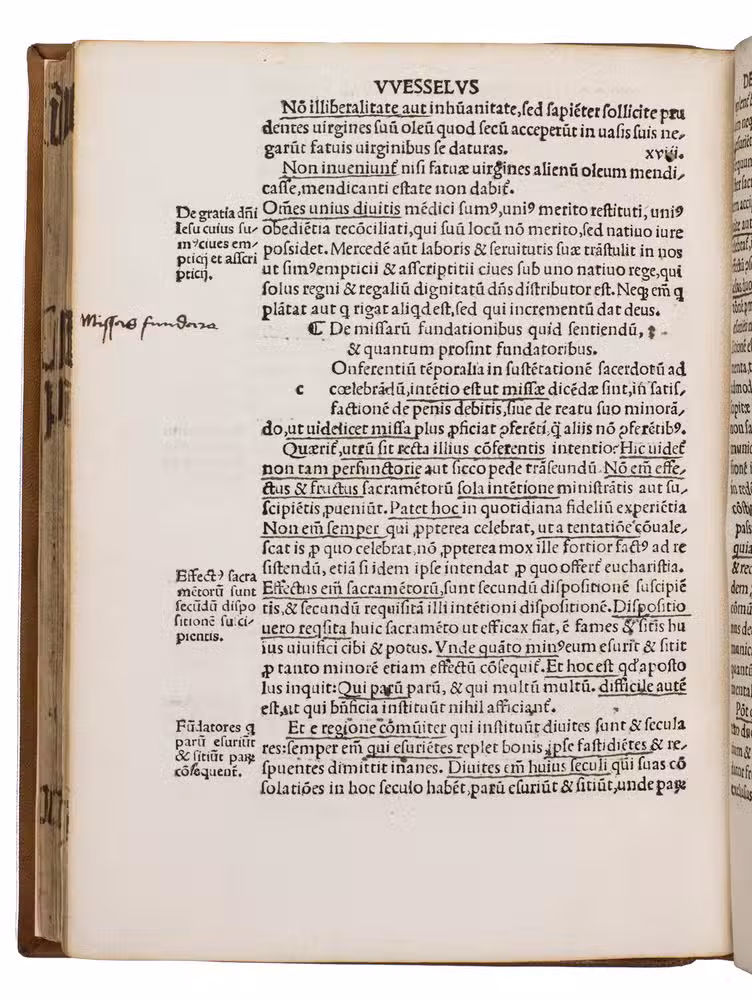 VVESSELVS
Nō illiberalitate aut inhūanitate, sed sapiēter sollicite pru
dentes uirgines suū oleū quod secū acceperūt in uasis suis ne⸗
garūt fatuis uirginibus se daturas.
xviij.
Non inueniunt̄ nisi fatuæ uirgines alienū oleum mendi⸗
casse, mendicanti estate non dabit̄.
De gratia dñi
Iesu cuius su⸗
mꝰciues em⸗
pticij et asscri
pticij.
Om̄es unius diuitis mēdici sumꝰ, uniꝰ merito restituti, uniꝰ
obediētia recōciliati, qui suū locū nō merito, sed natiuo iure
possidet. Mercedē aūt laboris & seruitutis suæ trāstulit in nos
ut simꝰempticii & asscriptitii ciues sub uno natiuo rege, qui
solus regni & regaliū dignitatū dñs distributor est. Neqꝫ em̄ q
plātat aut q rigat aliqd est, sed qui incrementū dat deus.
Missas fundare
¶ De missarū fundationibus quid sentiendū,
& quantum prosint fundatoribus.
Onferentiū tēporalia in sustētationē sacerdotū ad
c cœlebrādū, intētio est ut missæ dicēdæ sint, in̄ satis⸗
factionē de penis debitis, siue de reatu suo minorā⸗
do, ut uidelicet missa plus ꝓficiat ꝯferēti, q̄ aliis nō ꝯferētibꝰ.
Quærit̄, utrū sit recta illius cōferentis intentio: Hic uidet̄
non tam perfunctorie aut sicco pede trāseundū. Nō em̄ effe⸗
ctus & fructus sacramētorū sola intētione ministrātis aut su⸗
scipiētis ꝓueniūt. Patet hoc in quotidiana fideliū experiētia
Non em̄ semper qui ꝓpterea celebrat, ut a tentatiōe cōuale⸗
scat is ꝓ quo celebrat, nō ꝓpterea mox ille fortior factꝰ ad re
sistendū, etiā si idem ipse intendat ꝓ quo offert̄ eucharistia.
Effectꝰ sacra
mētorū sunt
secūdū dispo
sitionē susci⸗
pientis.
Effectus em̄ sacramētorū, sunt secundū dispositionē suscipiē
tis, & secundū requisitā illi intētioni dispositionē. Dispositio
uero reqsita huic sacramēto ut efficax fiat, ē fames & sitis hu
ius uiuifici cibi & potus. Vnde quāto minꝰeum esurit & sitit
ꝓ tanto minorē etiam effectū cōsequit̄. Et hoc est qd̓ aposto
lus inquit: Qui parū parū, & qui multū multū. difficile autē
est, ut qui bn̄ficia instituūt nihil afficiant̄.
Fūdatores q
parū esuriūt
& sitiūt parꝫ
cōsequent̄.
Et e regione cōmūiter qui instituūt diuites sunt & secula
res: semper em̄ qui esuriētes replet bonis ipse fastidiētes & re⸗
spuentes dimittit inanes. Diuites em̄ huius seculi qui suas cō
solatiōes in hoc seculo habēt, parū esuriūt & sitiūt, unde parꝫ